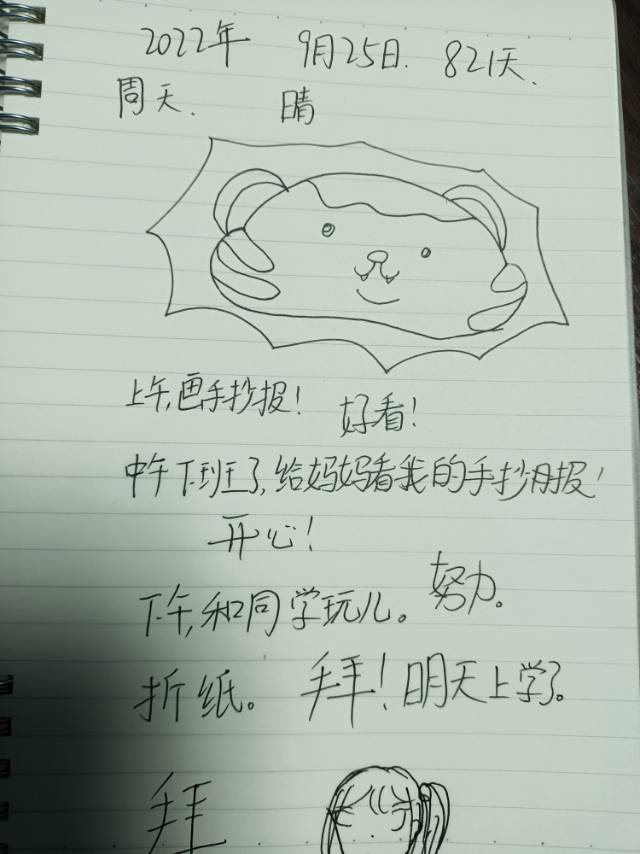 2022年 9月25日. 821天.
周天. 晴
上午,画手抄报! 好看!
中午下班了,给妈妈看我的手抄报!
开心!
下午,和同学玩儿。努力。
折纸。 拜!明天上学了。
拜